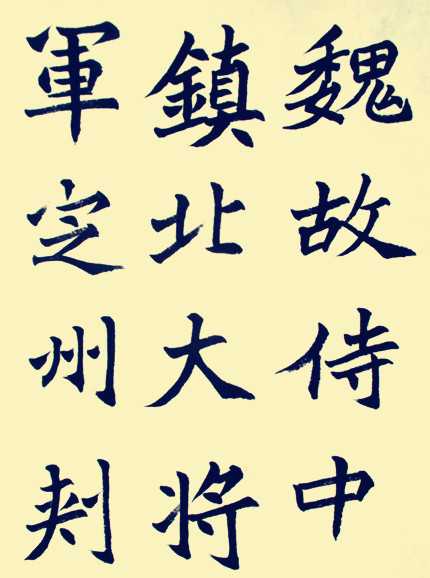 魏故侍中
鎮北大將
軍定州刾